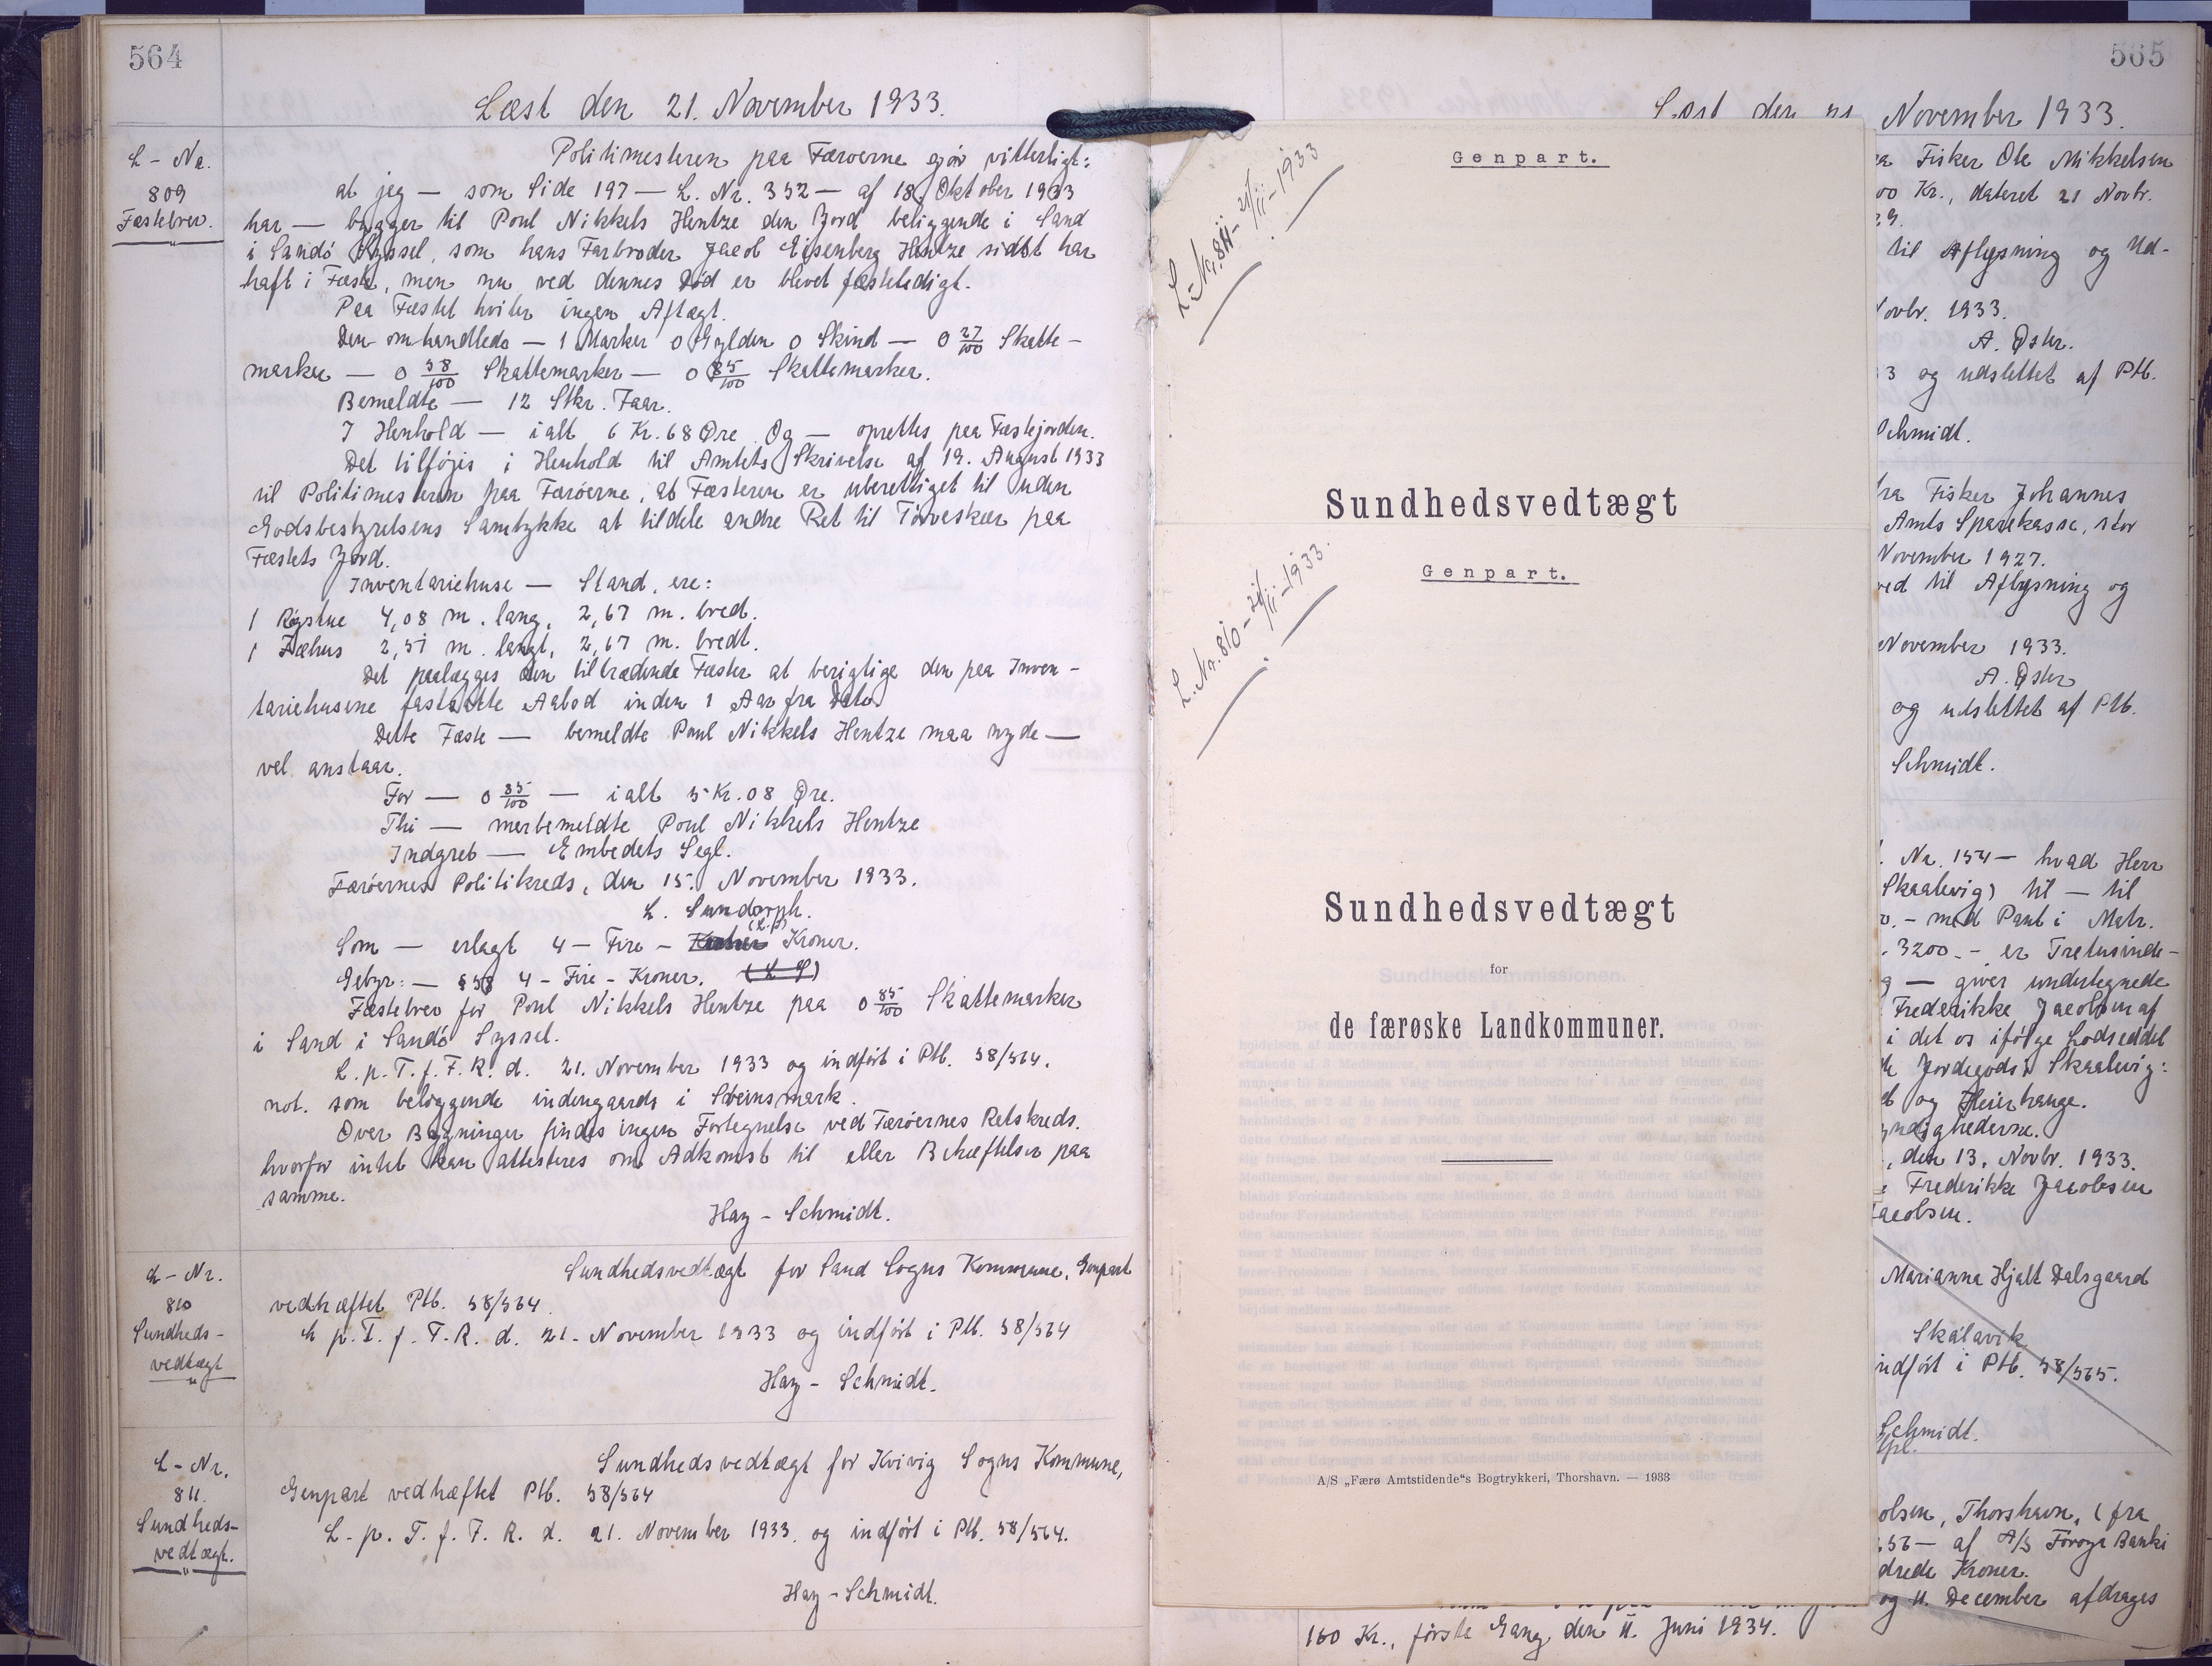 564
Læst den 21. November 1933.
L-Nr.
809
Fæstebrev.
Politimesteren paa Færøerne gjør vitterligt:
at jeg — som Side 197 — L. Nr. 352 — af 18. Oktober 1933
har — bygger til Poul Nikkels Hentze den Jord beliggende i Sand
i Sandø Syssel, som hans Farbroder Jacob Eisenberg Hentze sidst har
haft i Fæste, men nu ved dennes Død er blevet fæsteledigt.
Paa Fæstet hviler ingen Aftægt.
Den omhandlede — 1 Marker 0 Gylden 0 Skind — 0 27/100 Skatte-
marker — 0 58/100 Skattemarker — 0 85/100 Skattemarker.
Bemeldte — 12 Stkr. Faar.
I Henhold — ialt 6 Kr. 68 Øre. Og — oprettes paa Fæstejorden.
Det tilføjes i Henhold til Amtets Skrivelse af 19. August 1933
til Politimesteren paa Færøerne, at Fæsteren er uberettiget til uden
Godsbestyrelsens Samtykke at tildele andre Ret til Tørveskær paa
Fæstets Jord.
Inventariehuse — Stand, ere:
1 Røgstue 4,08 m. lang, 2,67 m. bred.
1 Fæhus 2,51 m. langt, 2,67 m. bredt.
Det paalægges den tiltrædende Fæster at berigtige den paa Inven-
tariehusene fastsatte Aabod inden 1 Aar fra Dato.
Dette Fæste — bemeldte Poul Nikkels Hentze maa nyde —
vel anstaar.
For — 0 85/100 — ialt 5 Kr. 08 Øre.
Thi — merbemeldte Poul Nikkels Hentze
Indgreb — Embedets Segl.
Færøernes Politikreds, den 15. November 1933.
L. Sundorph.
(L.S.)
Som — erlagt 4 - Fire - Kroner.
Gebyr: — § 58 4 - Fire - Kroner. (L S)
Fæstebrev for Poul Nikkels Hentze paa 0 85/100 Skattemarker
i Sand i Sandø Syssel.
L. p. T. f. F. R. d. 21. November 1933 og indført i Ptb. 58/564.
not. som beliggende indengaards i Steinsmark.
Over Bygninger findes ingen Fortegnelse ved Færøernes Retskreds.
hvorfor intet kan attesteres om Adkomst til eller Behæftelser paa
samme.
Hay-Schmidt.
L-Nr.
810
Sundheds-
vedtægt
Sundhedsvedtægt for Sand Sogns Kommune, Genpart
vedhæftet Ptb. 58/564.
L p. T. f. F. R. d. 21. November 1933 og indført i Ptb. 58/564
Hay-Schmidt.
L-Nr.
811.
Sundheds-
vedtægt.
Sundhedsvedtægt for Kvivig Sogns Kommune,
Genpart vedhæftet Ptb. 58/564
L. p. T. f. F. R. d. 21. November 1933. og indført i Ptb. 58/564.
Hay-Schmidt.
L-Nr. 811 - 21/11-1933
Genpart.
Sundhedsvedtægt
L. Nr. 810 - 21/11-1933.
Genpart.
Sundhedsvedtægt
for
de færøske Landkommuner.
A/S „Færø Amtstidende“s Bogtrykkeri, Thorshavn. — 1933
160 Kr., første Gang den 11. Juni 1934.
565
Læst den 21 November 1933.
Fisker Ole Mikkelsen
00 Kr., dateret 21 Novbr.
29.
til Aflysning og Ud-
Novbr. 1933.
A. Øster.
3 og udslettet af Ptb.
Schmidt.
fra Fisker Johannes
Amts Sparekasse, stor
November 1927.
ved til Aflysning og
November 1933.
A. Øster
og udslettet af Ptb.
Schmidt.
Nr. 154 — hvad Herr
Skaalevig) til — til
- med Pant i Matr.
3200.- er Tretusinde-
g — giver undertegnede
Frederikke Jacobsen af
i det os ifølge Lodseddel
Jordegods i Skaalevig:
og Heierhange.
yndighederne.
, den 13. Novbr. 1933.
Frederikke Jacobsen
Jacobsen.
Marianna Hjalt Dalsgaard
Skálavik
indført i Ptb. 58/565.
Schmidt.
olsen, Thorshavn, (fra
56 — af A/S Føroya Banki
drede Kroner.
og 11. December afdrages